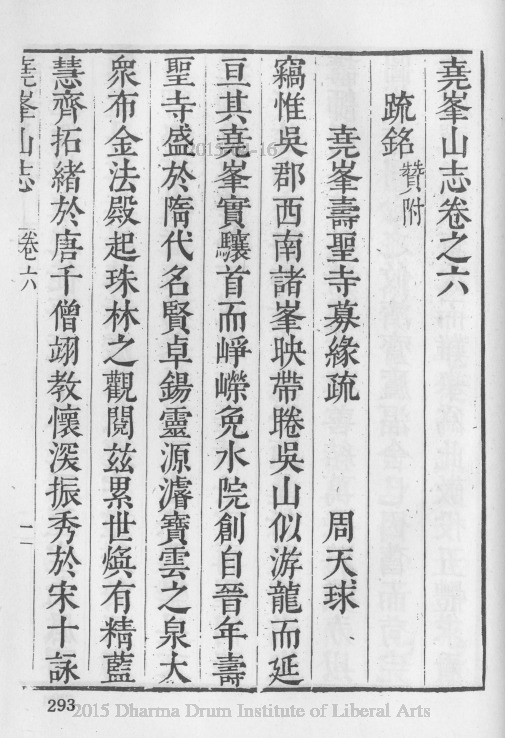 堯峯山志卷之六
疏銘贊附
堯峯壽聖寺募緣疏 周天球
竊惟吳郡西南諸峯映帶睠吳山似游龍而延
亘其堯峯實驤首而崢嶸免水院創自晉年壽
聖寺盛於隋代名賢卓錫靈源濬寶雲之泉大
衆布金法殿起珠林之觀閱玆累世煥有精藍
慧齊拓緒於唐千僧翊教懷深振秀於宋十詠
堯峯山志 卷六 一
293
2015 Dharma Drum Institute of Liberal Arts